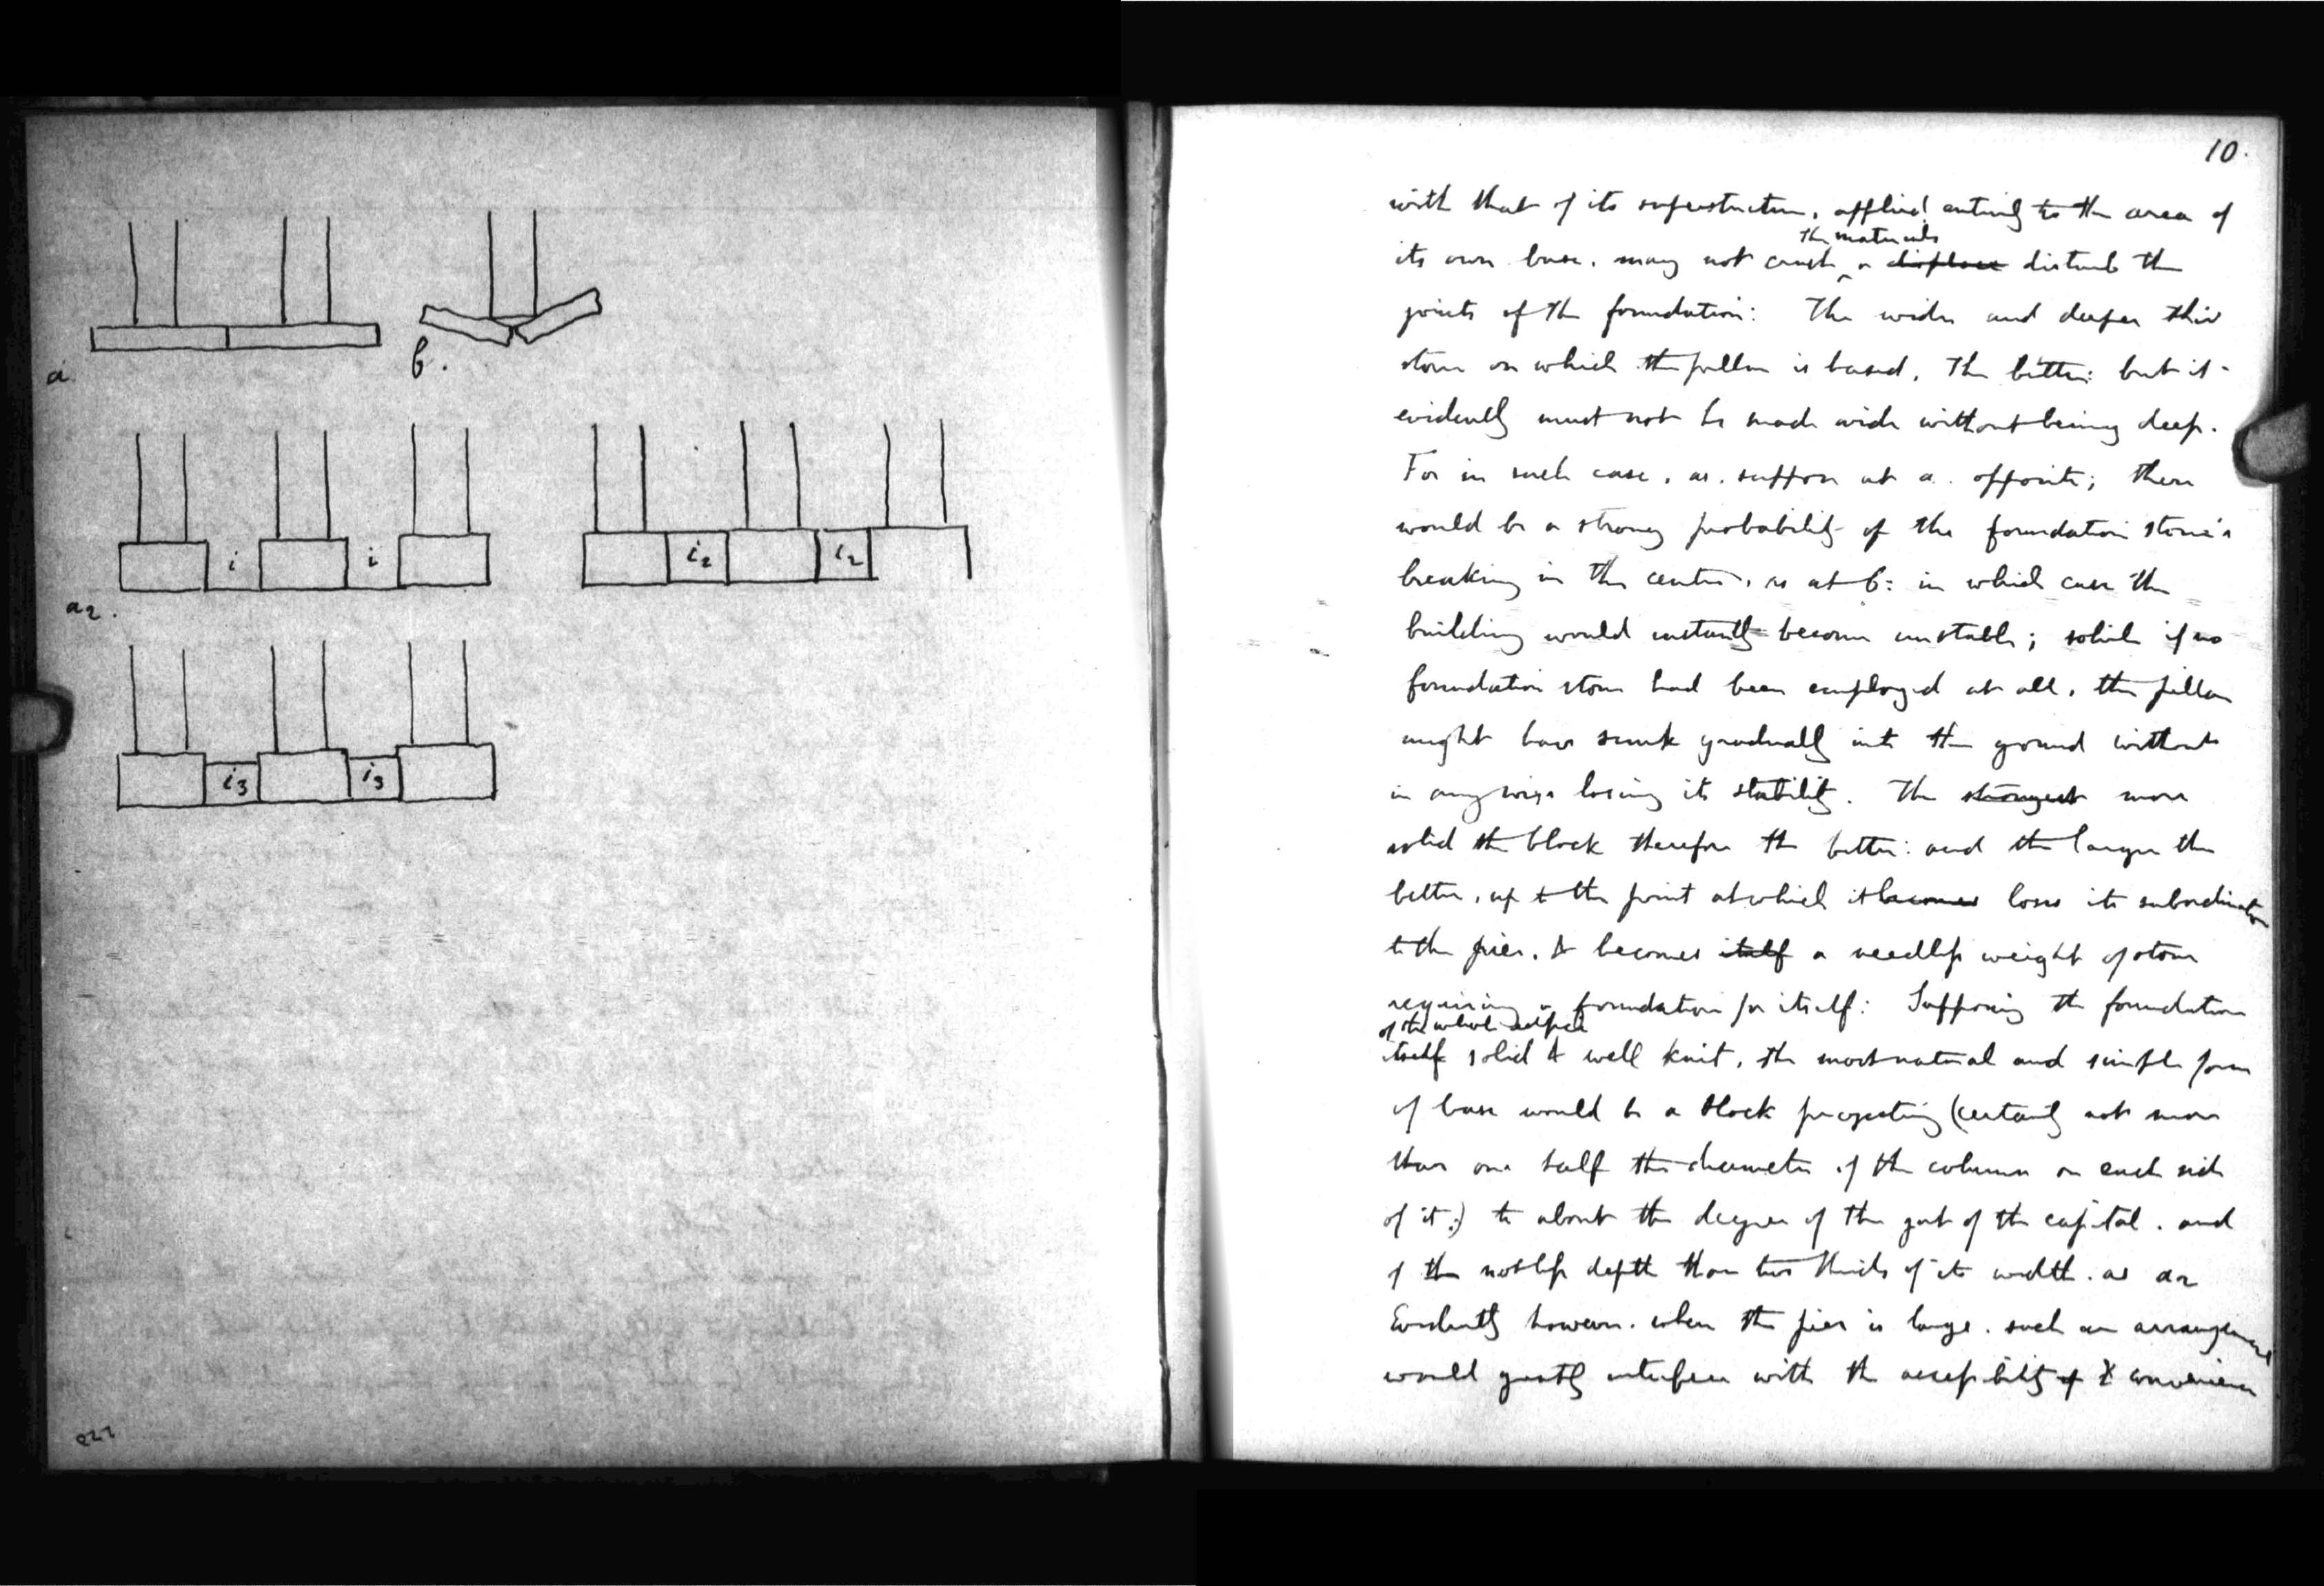 a
b.
i
i
i2
i2
a2.
i3
i3
10.
with that of its superstructure, applied entirely to the area of
the materials
its own base, may not crush or displace disturb the
joints of the foundation: The wider and deeper this
stone on which the pillar is based, the better: but it
evidently must not be made wide without being deep.
For in such case, as. suppose at a. opposite; there
would be a strong probability of the foundation stone's
breaking in the centre, as at b: in which case the
building would instantly become unstable; while if no
foundation stone had been employed at all, the pillar
might have sunk gradually into the ground without
in anywise losing its stability. The strongest more
solid the block therefore the better: and the larger the
better, up to the point at which it becomes loses its subordination
to the pier, & becomes itself a needless weight of stone
requiring a foundation for itself: Supposing the foundation
of the whole
itself solid & well knit, the most natural and simple form
of base would be a block projecting (certainly not more
than one half the diameter of the column on each side
of it;) to about the degree of the jut of the capital. and
of the not less depth than two thirds of its width. as a2
Evidently however. when the pier is large. such an arrangement
would greatly interfere with the accessibility of & convenience